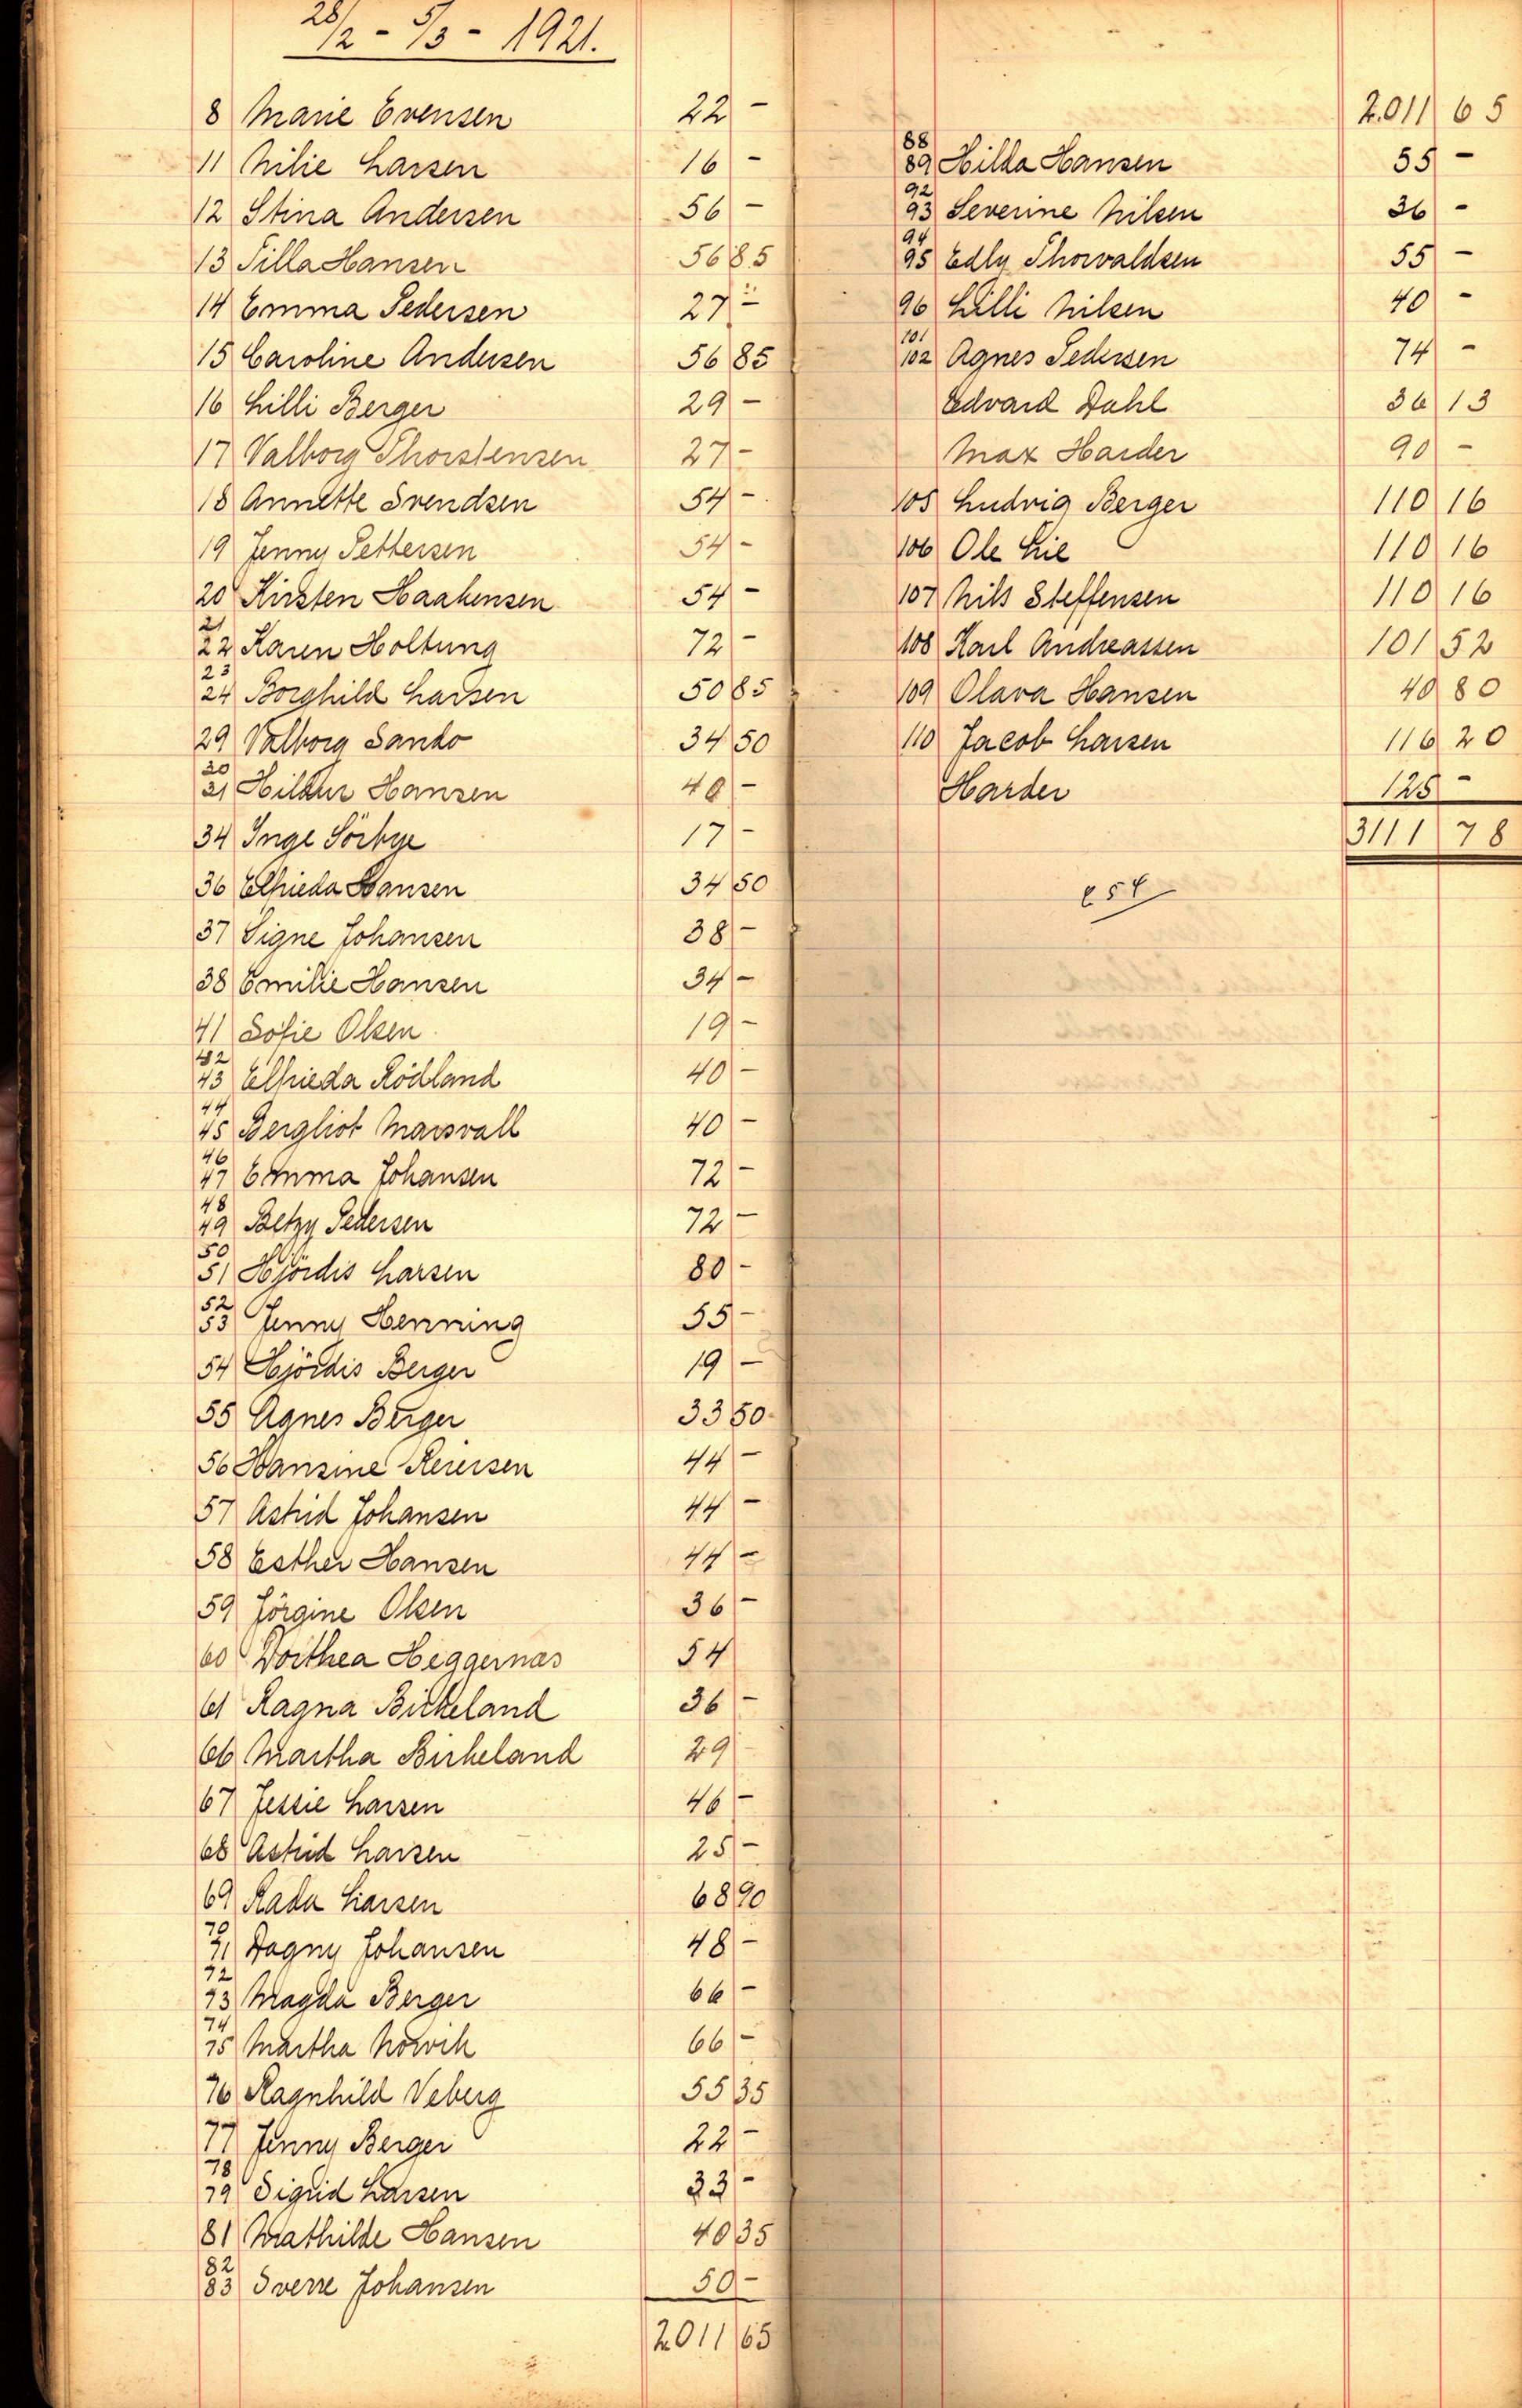 28/2 - 5/3 - 1921.
8 Marie Evensen 22 -
11 Milie Larsen 16 -
12 Stina Andersen 56 -
13 Tilla Hansen 56 85
14 Emma Pedersen 27 -
15 Caroline Andersen 56 85
16 Lilli Berger 29 -
17 Valborg Thorstensen 27 -
18 Annette Svendsen 54 -
19 Jenny Pettersen 54 -
20 Kirsten Haakensen 54 -
21
22 Karen Holtung 72 -
23
24 Borghild Larsen 50 85
29 Valborg Sando 34 50
30
31 Hildur Hansen 40 -
34 Inge Sörbye 17 -
36 Elfrieda Hansen 34 50
37 Signe Johansen 38 -
38 Emilie Hansen 34 -
41 Sofie Olsen 19 -
42
43 Elfrieda Rödland 40 -
44
45 Bergliot Marsvall 40 -
46
47 Emma Johansen 72 -
48
49 Betzy Pedersen 72 -
50
51 Hjördis Larsen 80 -
52
53 Jenny Henning 55 -
54 Hjördis Berger 19 -
55 Agnes Berger 33 50
56 Hansine Reiersen 44 -
57 Astrid Johansen 44 -
58 Esther Hansen 44 -
59 Jörgine Olsen 36 -
60 Dorthea Heggernæs 54
61 Ragna Birkeland 36 -
66 Martha Birkeland 29 -
67 Jessie Larsen 46 -
68 Astrid Larsen 25 -
69 Rada Larsen 68 90
70
71 Dagny Johansen 48 -
72
73 Magda Berger 66 -
74
75 Martha 66 -
76 Ragnhild Veberg 55 35
77 Jenny Berger 22 -
78
79 Sigrid Larsen 33 -
81 Mathilde Hansen 40 35
82
83 Sverre Johansen 50 -
2011 65
2.011 65
88
89 Hilda Hansen 55 -
92
93 Severine Nilsen 36 -
94
95 Edly Thorvaldsen 55 -
96 Lilli Nilsen 40 -
101
102 Agnes Pedersen 74 -
Edvard Dahl 36 13
Max Harder 90 -
105 Ludvig Berger 110 16
106 Ole Lie 110 16
107 Nils Steffensen 110 16
108 Karl Andreassen 101 52
109 Olava Hansen 40 80
110 Jacob Larsen 116 20
Harder 125 -
3111 78